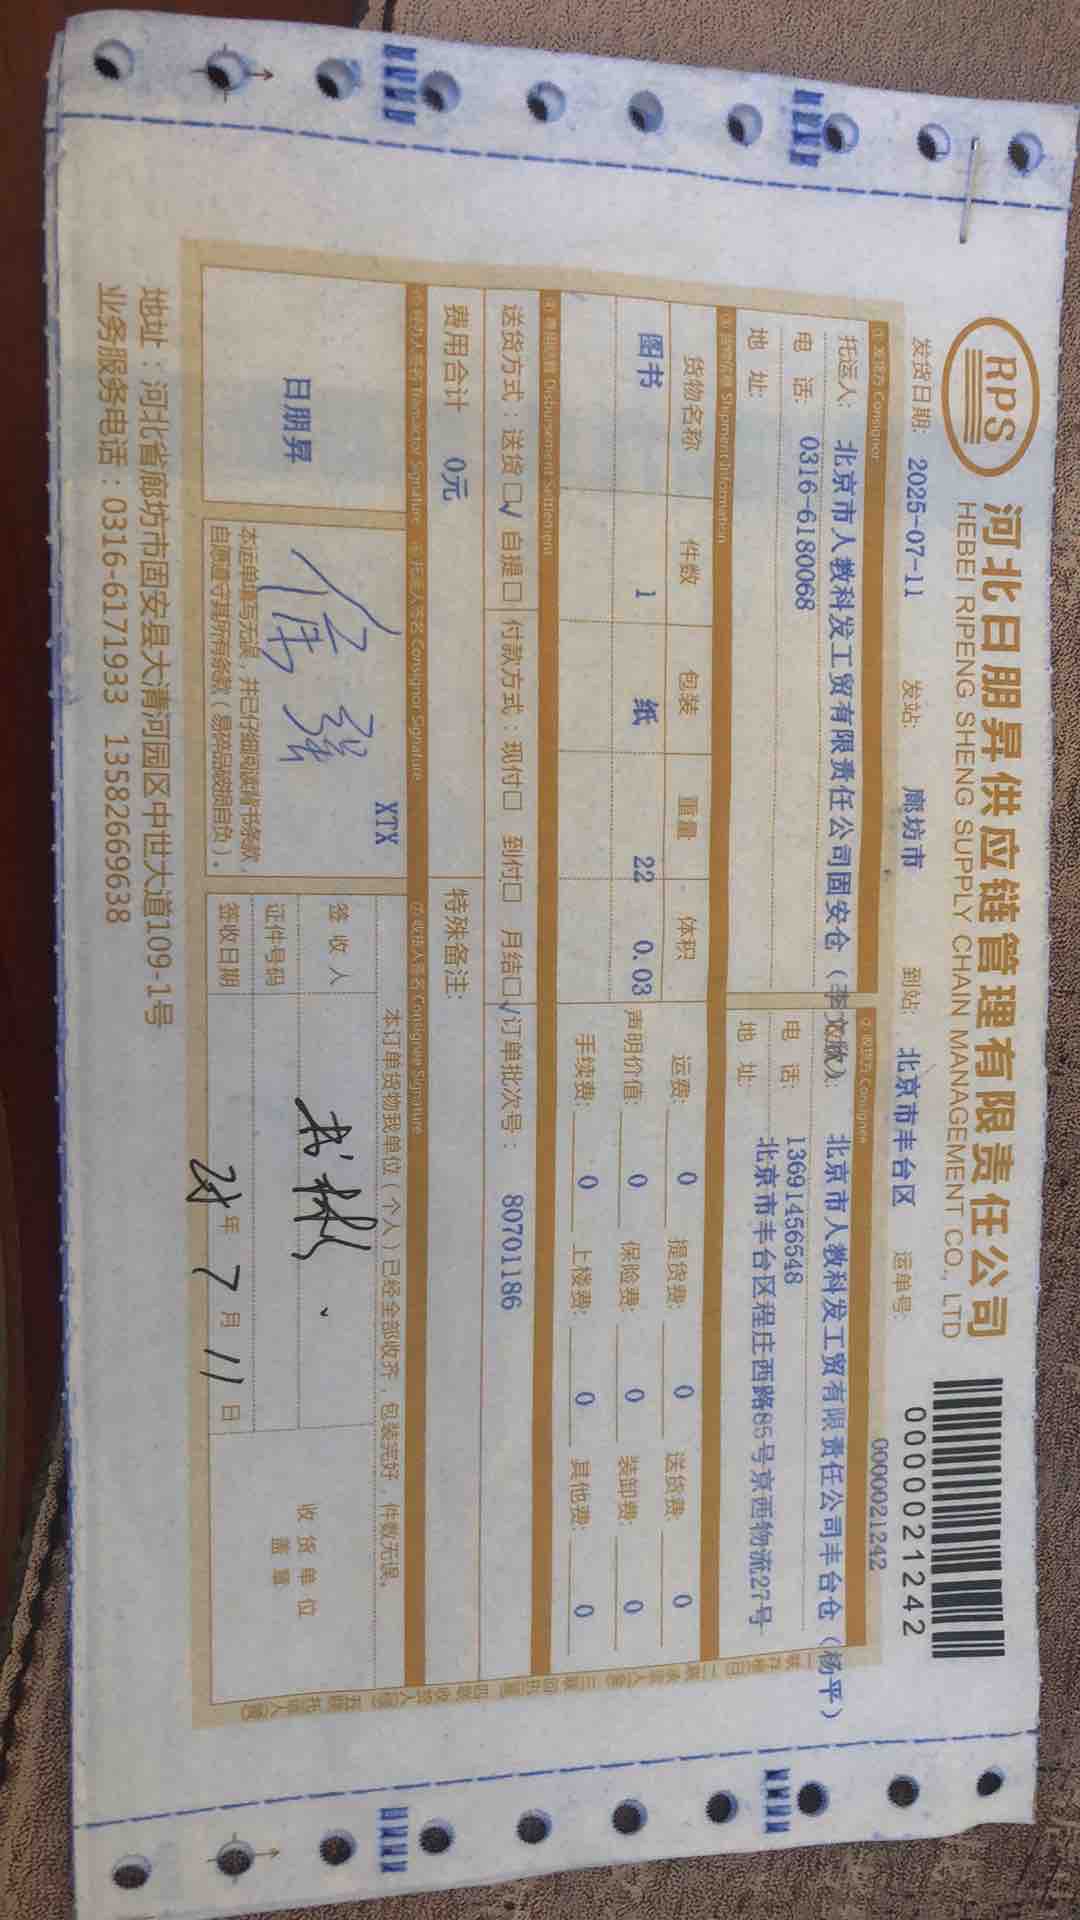 RPS
河北日朋昇供应链管理有限责任公司
HEBEI RIPENG SHENG SUPPLY CHAIN MANAGEMENT CO., LTD
0000021242
发货日期: 2025-07-11 发站: 廊坊市 到站: 北京市丰台区 运单号: 0000021242
① 发货方 Consigner
② 收货方 Consignee
托运人: 北京市人教科发工贸有限责任公司固安仓
北京市人教科发工贸有限责任公司丰台仓(杨平)
电 话: 0316-6180068
电 话: 13691456548
地 址:
地 址: 北京市丰台区程庄西路85号京西物流27号
③ 货物信息 Shipment Information
货物名称 件数 包装 重量 体积
图书 1 纸 22 0.03
运费: 0 提货费: 0 送货费: 0
声明价值: 0 保险费: 0 装卸费: 0
手续费: 0 上楼费: 0 其他费: 0
④ 费用结算 Disbursement Settlement
送货方式:送货☑ 自提□ 付款方式:现付□ 到付□ 月结☑ 订单批次号: 80701186
费用合计 0元
特殊备注:
Transactor Signature
托运人签名 Consignor Signature
⑦ 收货人签名 Consignee Signature
日朋昇
XTX
本运单填写无误,并已仔细阅读背书条款,
自愿遵守其所有条款(易碎品破损自负)。
本订单货物我单位(个人)已经全部收齐,包装完好,件数无误。
签收人
证件号码
签收日期 年 7 月 11 日
收货单位
盖章
地址:河北省廊坊市固安县大清河园区中世大道109-1号
业务服务电话:0316-6171933 13582669638